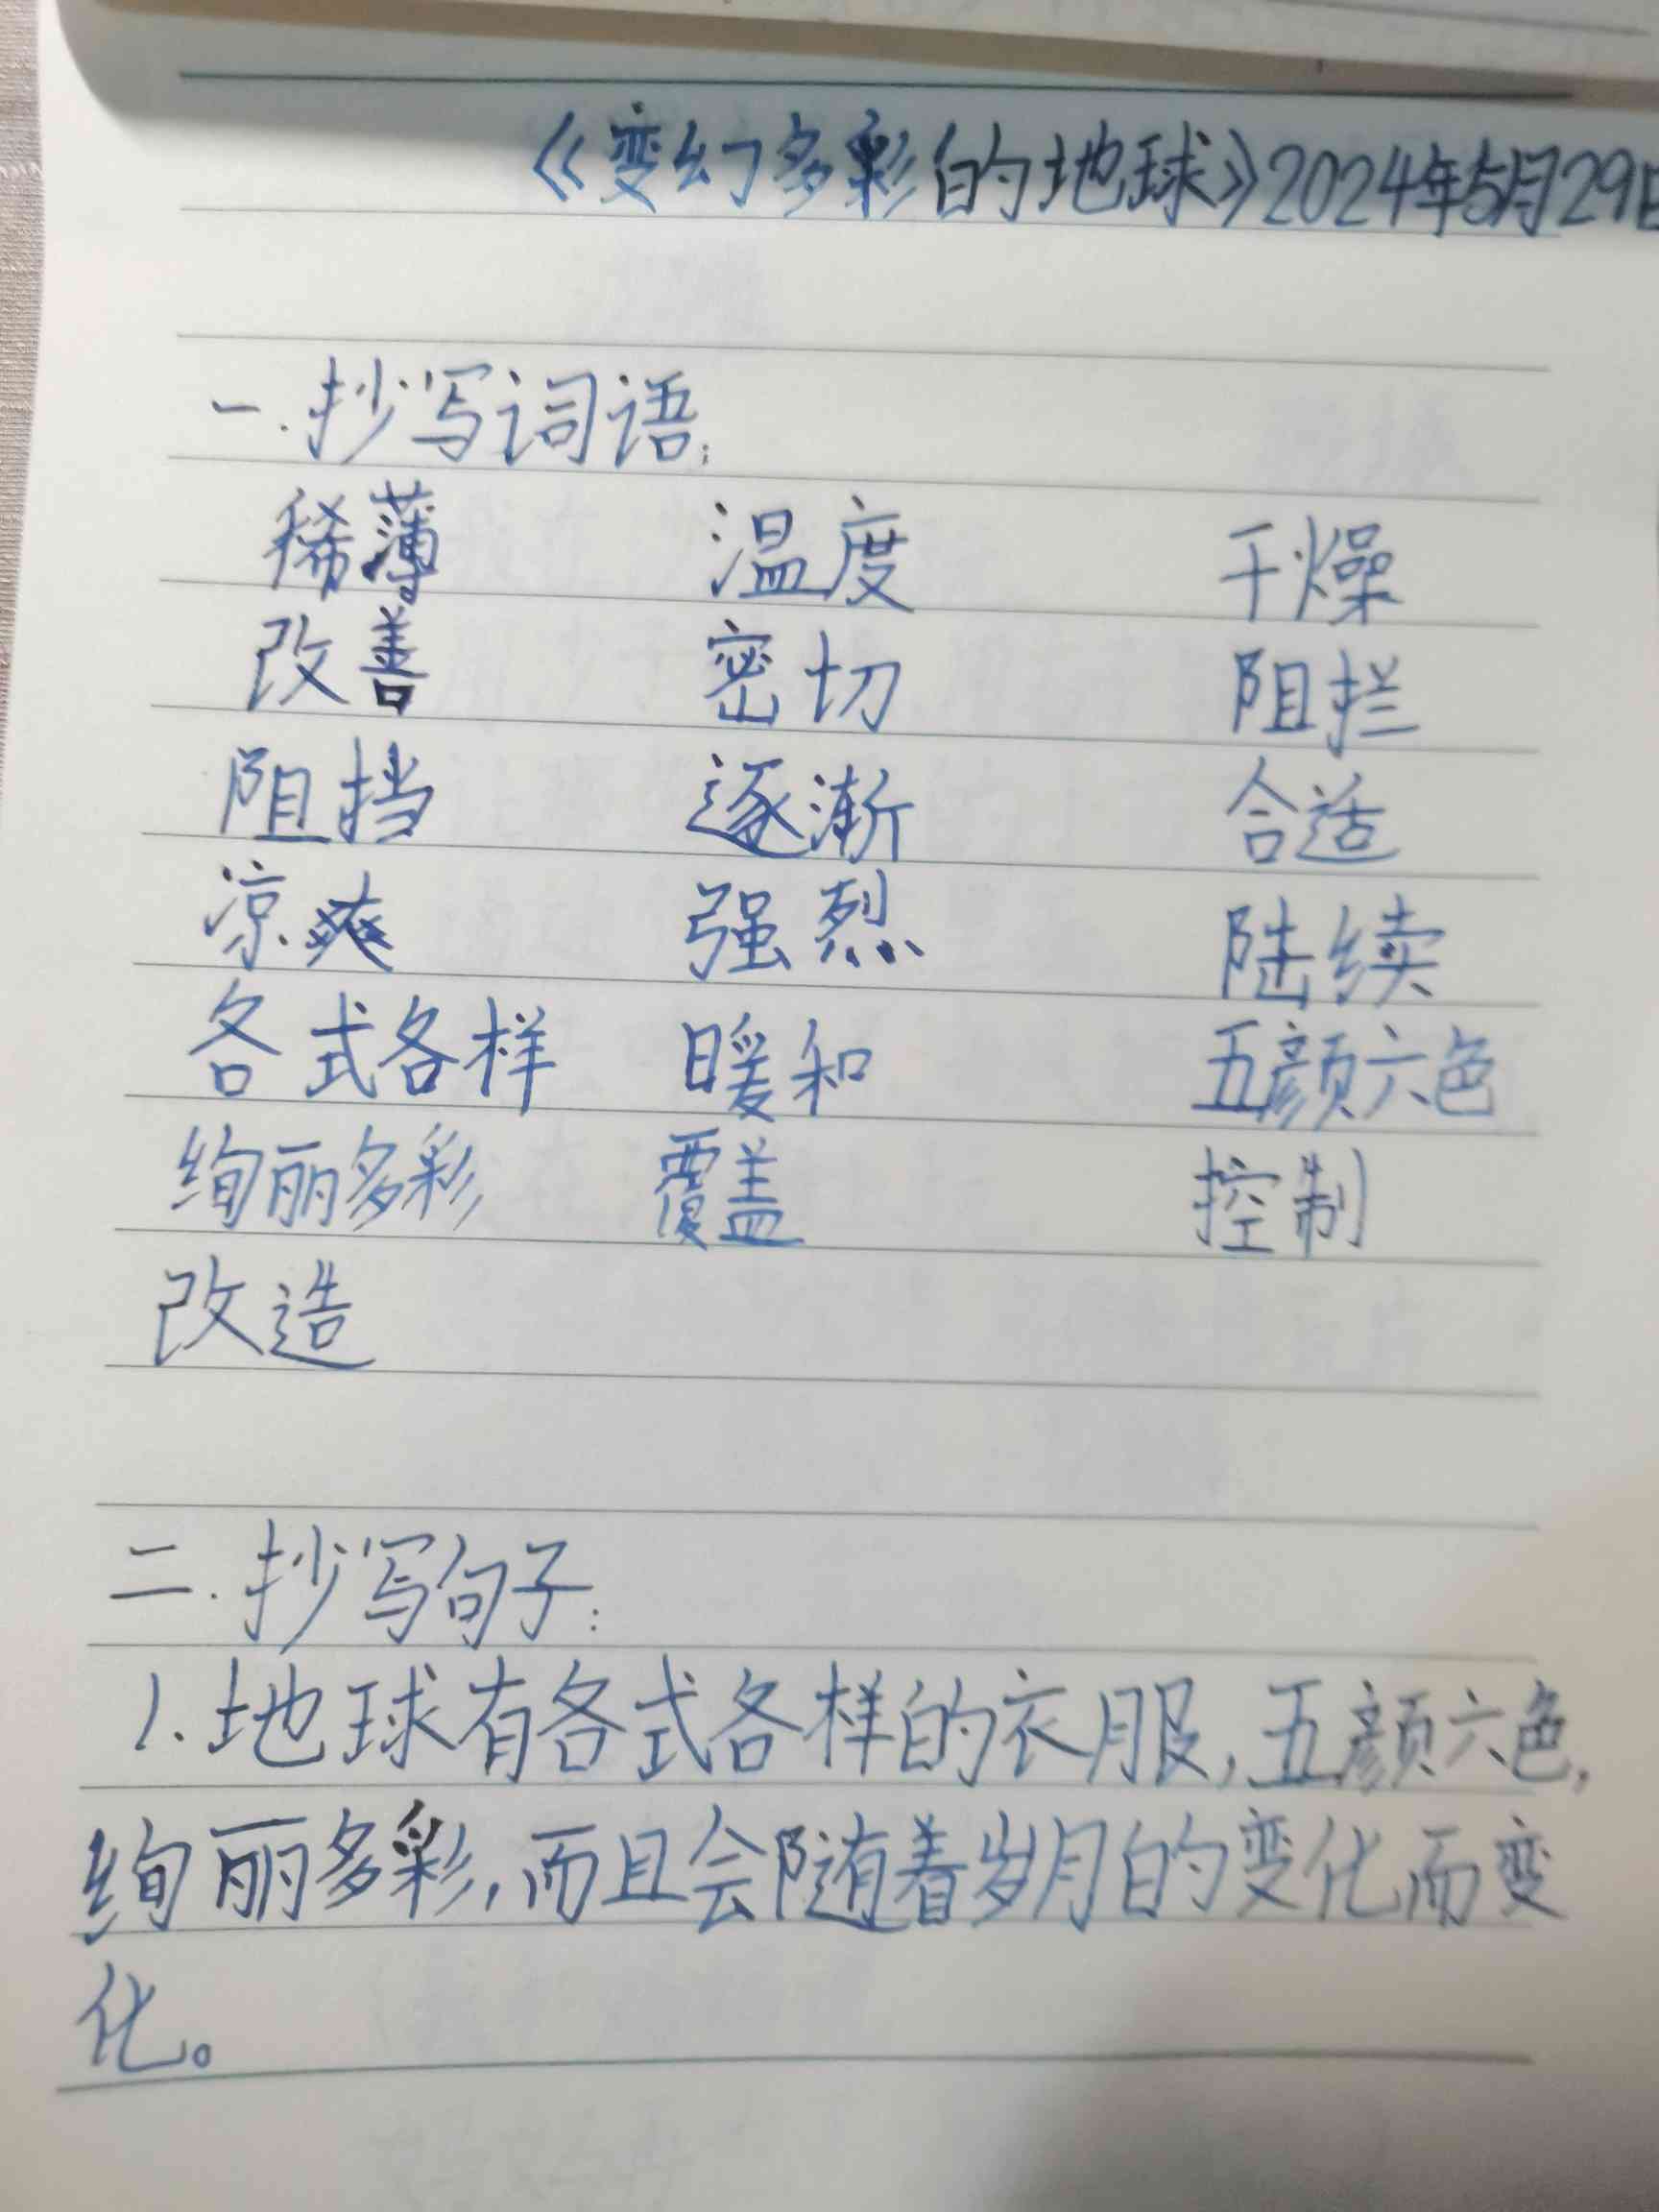 《变幻多彩的地球》2024年5月29日
一.抄写词语:
稀薄 温度 干燥
改善 密切 阻拦
阻挡 逐渐 合适
凉爽 强烈 陆续
各式各样 暖和 五颜六色
绚丽多彩 覆盖 控制
改造
二.抄写句子:
1.地球有各式各样的衣服,五颜六色,
绚丽多彩,而且会随着岁月的变化而变
化。